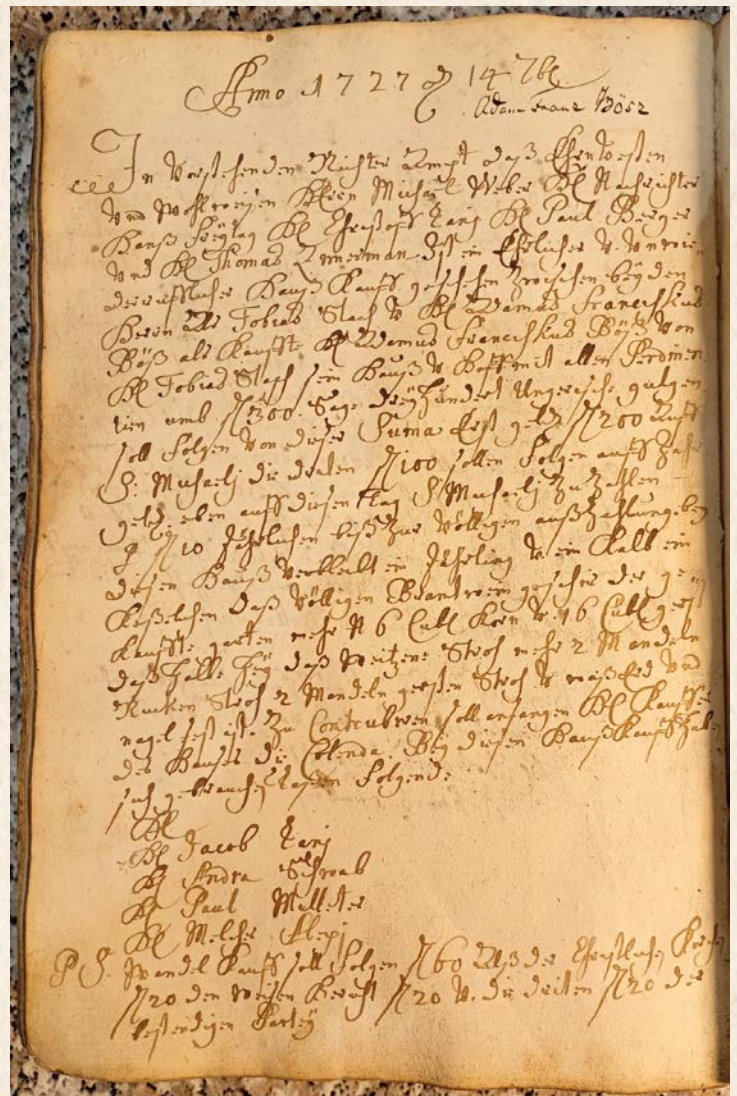 Anno 1727 d 14 7be
Adam Franz Bösz
In Vorstehenden Richter Ampt daß Ehrnvesten
Vnd Wohlweisen Herrn Michäel Weber H Nachrichter
Hanß Freytag H Christoff Lanj H Paul Berger
Vnd H Thomas Zimerman Ist ein Ehrlicher V. Vnwie
derrufflicher Hauß Kauff geschehen Zwischen beyden
Herrn Als Tobias Stach V H Adamus Francisskus
Böß als Kaufft H Adamus Francisskus Böß Von
H Tobias Stach sein Hauß V Hoff mit allen Perdinen
tien umb fl 300. Sage dreyhundert Ungerische gulgen
soll Folgen Von dieser Suma Erst geld fl 200 Auff
S: Michaelj die dritten fl 100 sollen Folgen auffs Jahr
geld eben auff diesen Tag S Michaelj Zu Zahlen
p fl 10 Jährlichen biß Zur Völligen außzahlung bey
diesen Hauß Verbleibt ein Jährling V. ein Kalb ein
daß Völligen Brantwein geschir der ge
kauffte garten mehr N 6 Cubl Korn V. 16 Cubl gerst
daß halbe Hey daß Weitzene Stroh mehr 2 Mandeln
Rucken Stroh 2 Mandeln gersten Stroh V. waß Erd Vnd
nagel fest ist. Zu Contribuiren soll anfangen H Kauffer
des Hauses die Colenda. Bey diesen Hauß Kauff habe
sich gebrauchen lassen Folgend:
H
H Jacob Lanj
H Andra Schwab
H Paul Milleter
H Melcher
P S. Wandel Kauff soll Folgen fl 60 Alß der Christlichen Kirchen
fl 20 den Weisen Gericht fl 20 V. die dritten fl 20 der
bestendigen Partey